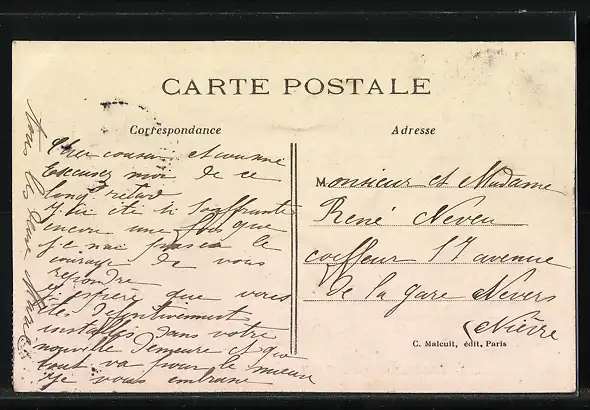 CARTE POSTALE
Correspondance
Cher cousin et cousine
Excusez moi de ce
long retard
J'ai été si souffrante
encore une fois que
je n'ai pas eu le
courage de vous
repondre
j'espere que vous
êtes definitivement
installés dans votre
nouvelle demeure et que
tout va pour le mieux
Je vous embrasse
Adresse
Monsieur et Madame
René Neveu
coiffeur 17 avenue
de la gare Nevers
Nièvre
C. Malcuit, édit, Paris